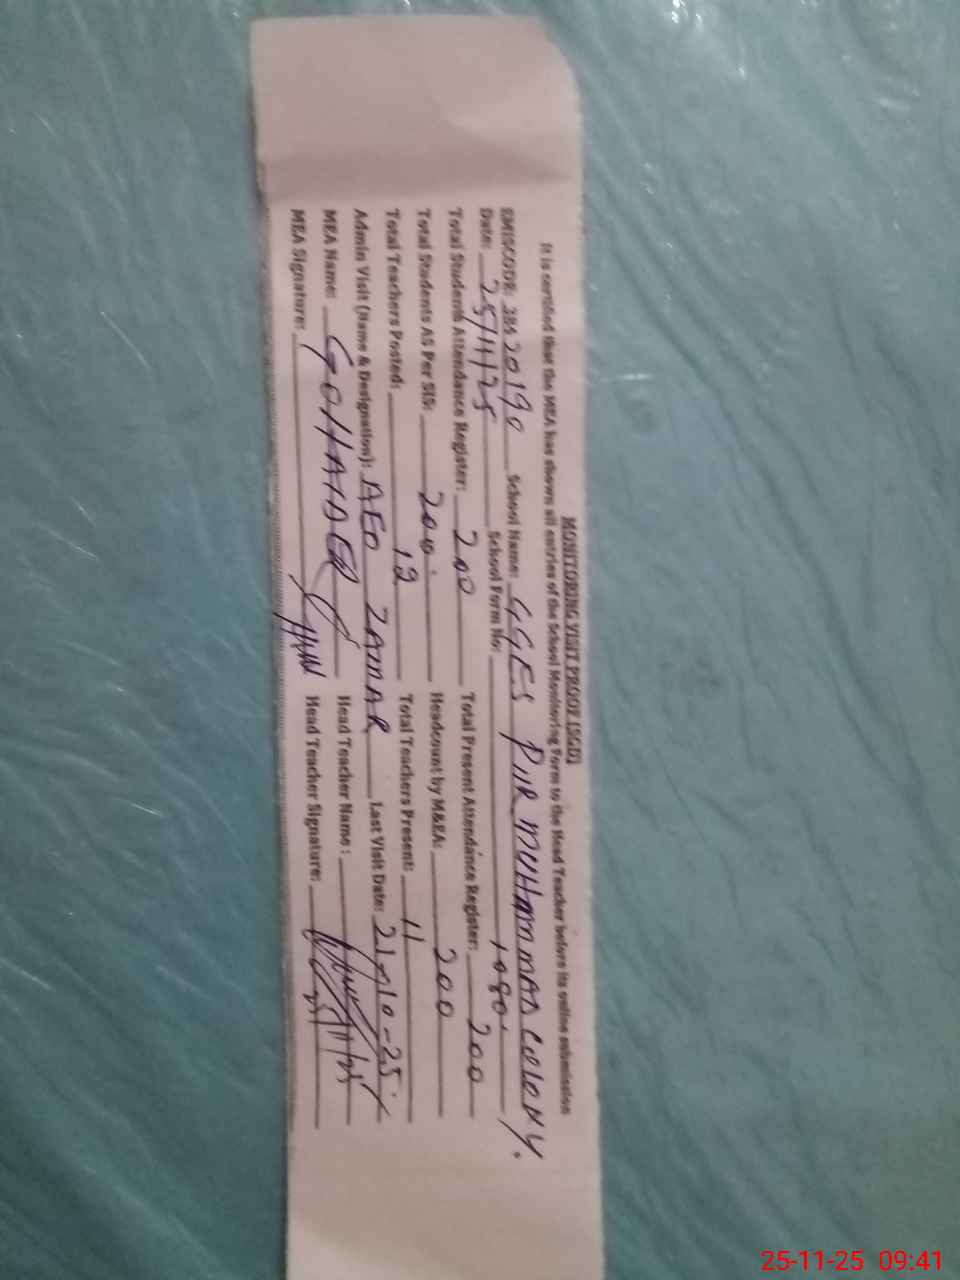 MONITORING VISIT PROOF (SGD)
It is certified that the MEA has shown all entries of the School Monitoring Form to the Head Teacher before its online submission
EMISCODE: 38420190 School Name: GGES PIIR MUHAMMAD COLONY.
Date: 25/11/25 School Form No: 1080.
Total Students Attendance Register: 200 Total Present Attendance Register: 200
Total Students AS Per SIS: 200. Headcount by M&EA: 200
Total Teachers Posted: 12 Total Teachers Present: 11
Admin Visit (Name & Designation): AEO Last Visit Date: 21-10-25
MEA Name: Head Teacher Name:
MEA Signature: Head Teacher Signature:
25-11-25 09:41